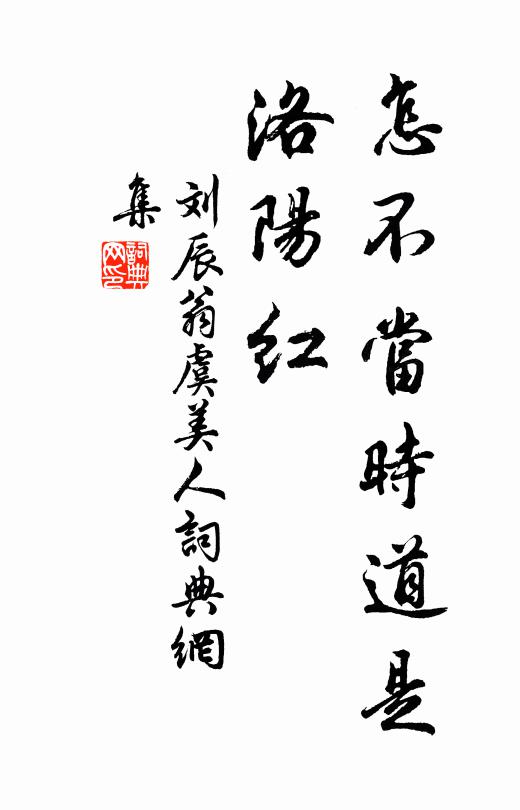 怎不當時道是
洛陽红
刘辰翁虞美人詞典網
集
詞典
网印